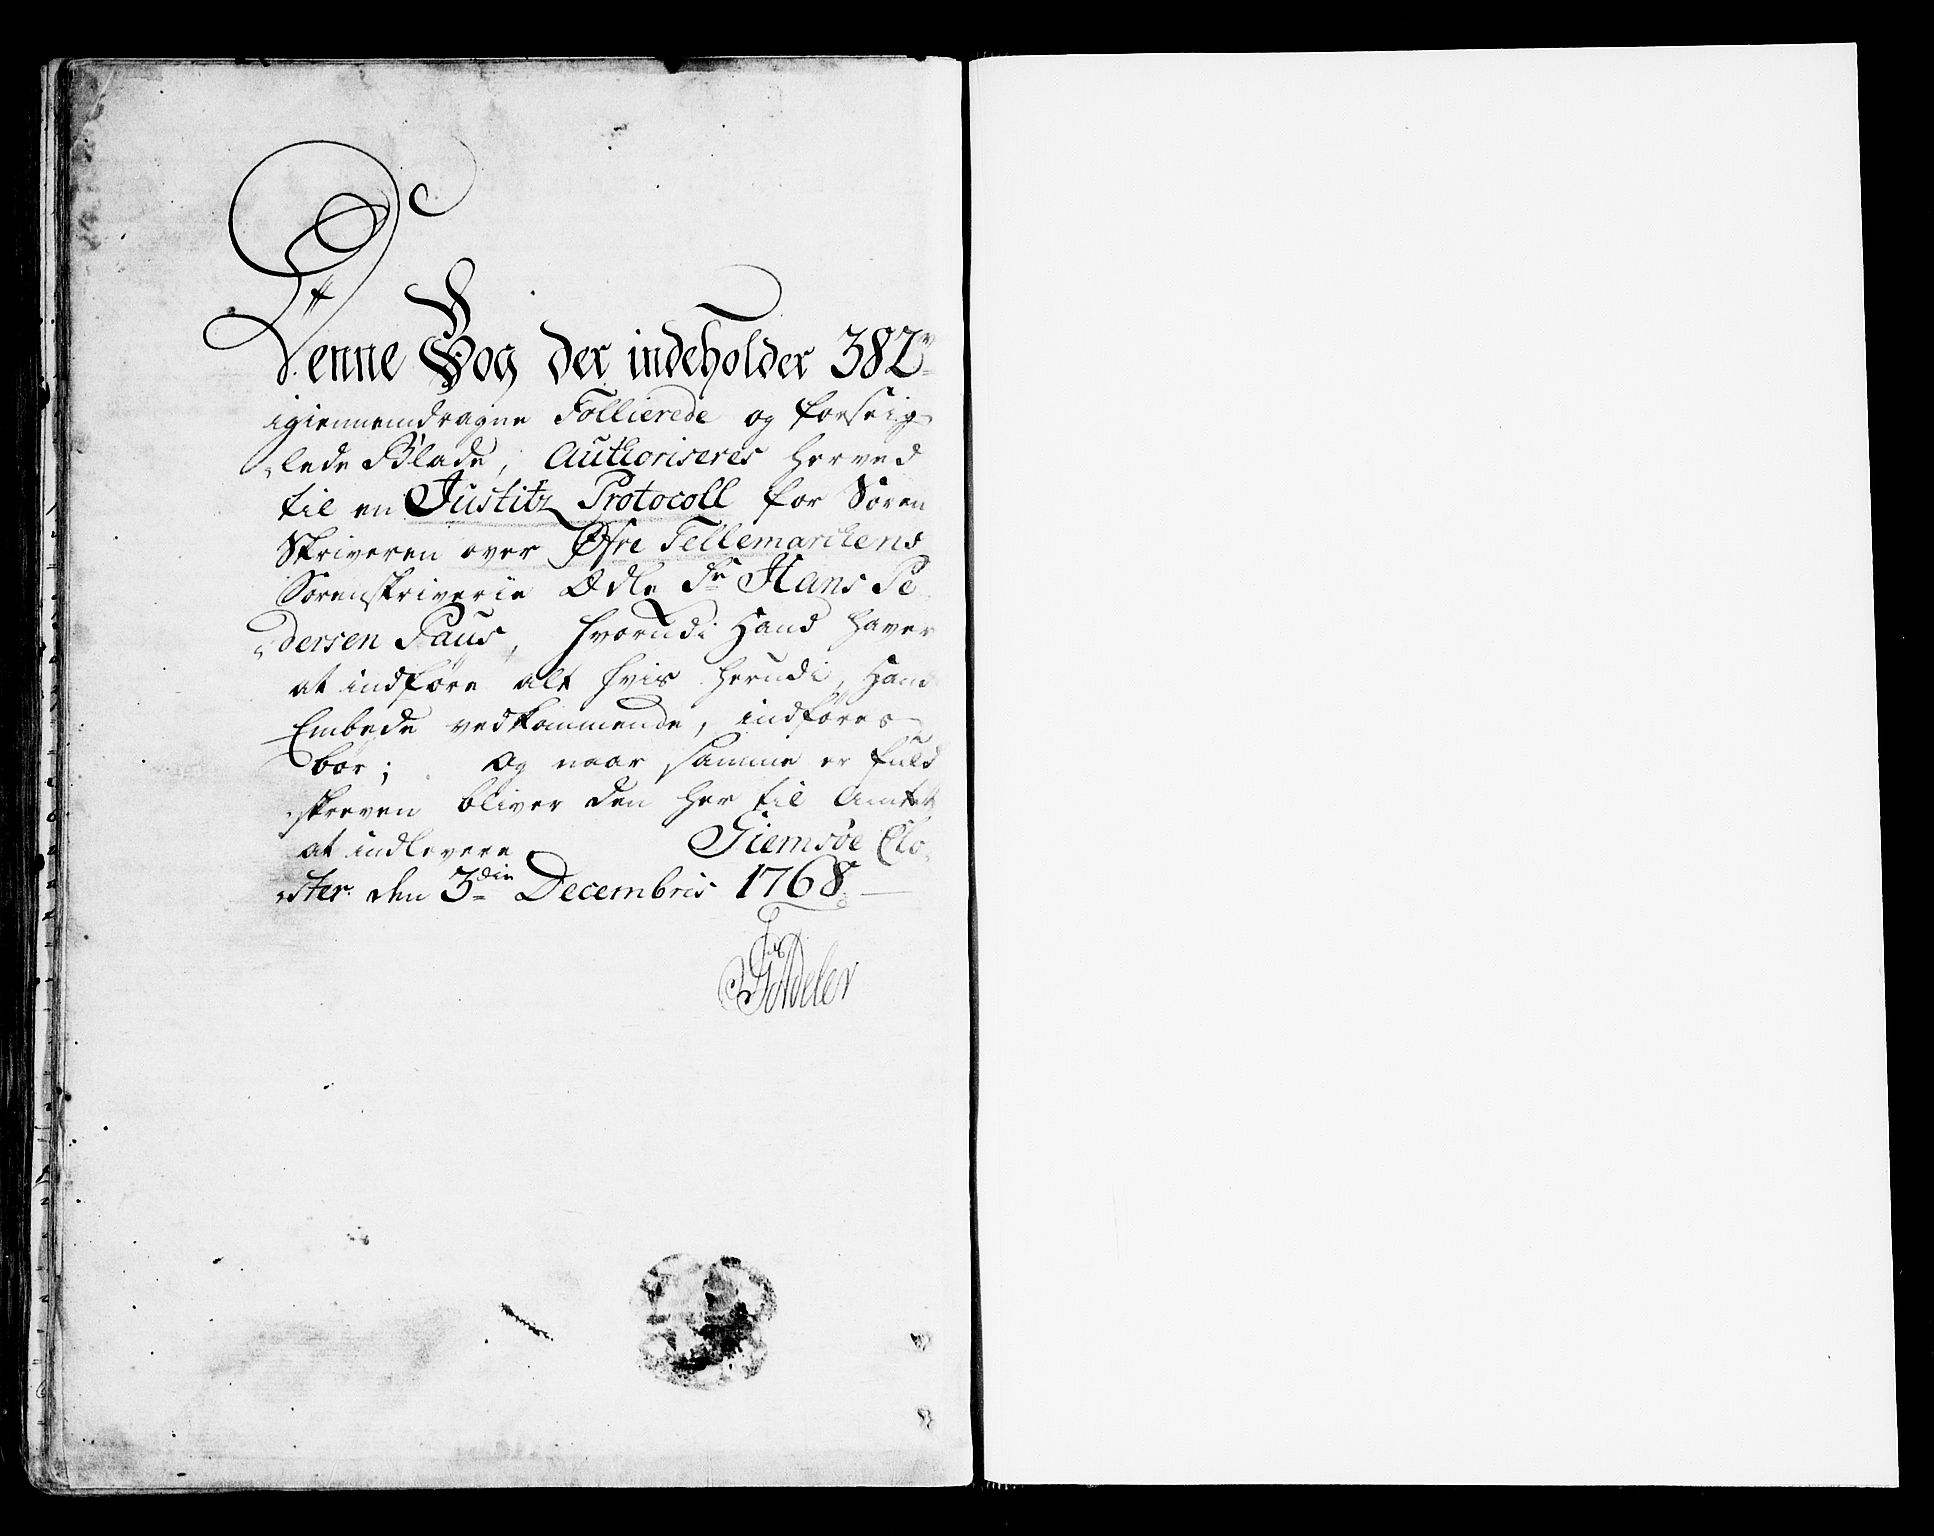 Denne Bog der indeholder 382
igiennemdragne Follierede og forseig-
lede Blade, Authoriseres herved
til en Justitz Protocoll for Soren
Skriveren over Øfre Tellemarckens
Sorenskriverie Ædle Sr Hans Pe
dersen Paus, hvorudi Hand haver
at indføre alt hvis herudi, Hans
Embede vedkommende, indføres
bør; Og naar samme er fuld
skreven bliver den her til Amtet
at indlevere Giemsøe Clo-
ster den 3die Decembris 1768.
Adeler